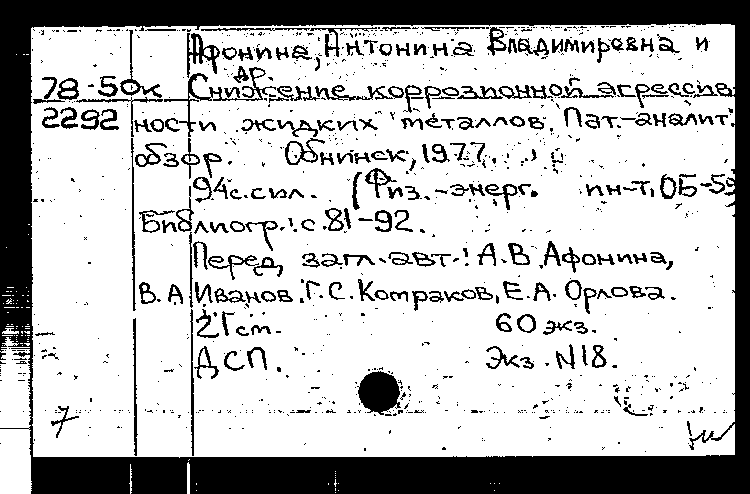 Афонина, Антонина Владимировна и
др.
78-50к Снижение коррозионной агрессив
2292 ности жидких металлов. Пат.-аналит.
обзор. Обнинск, 1977.
94с.сил. (Физ.-энерг. ин-т, ОБ-59
Библиогр.: с.81-92.
Перед загл. авт.: А.В. Афонина,
В.А. Иванов, Г.С. Котраков, Е.А. Орлова.
21см. 60 экз.
ДСП. Экз. N18.
7